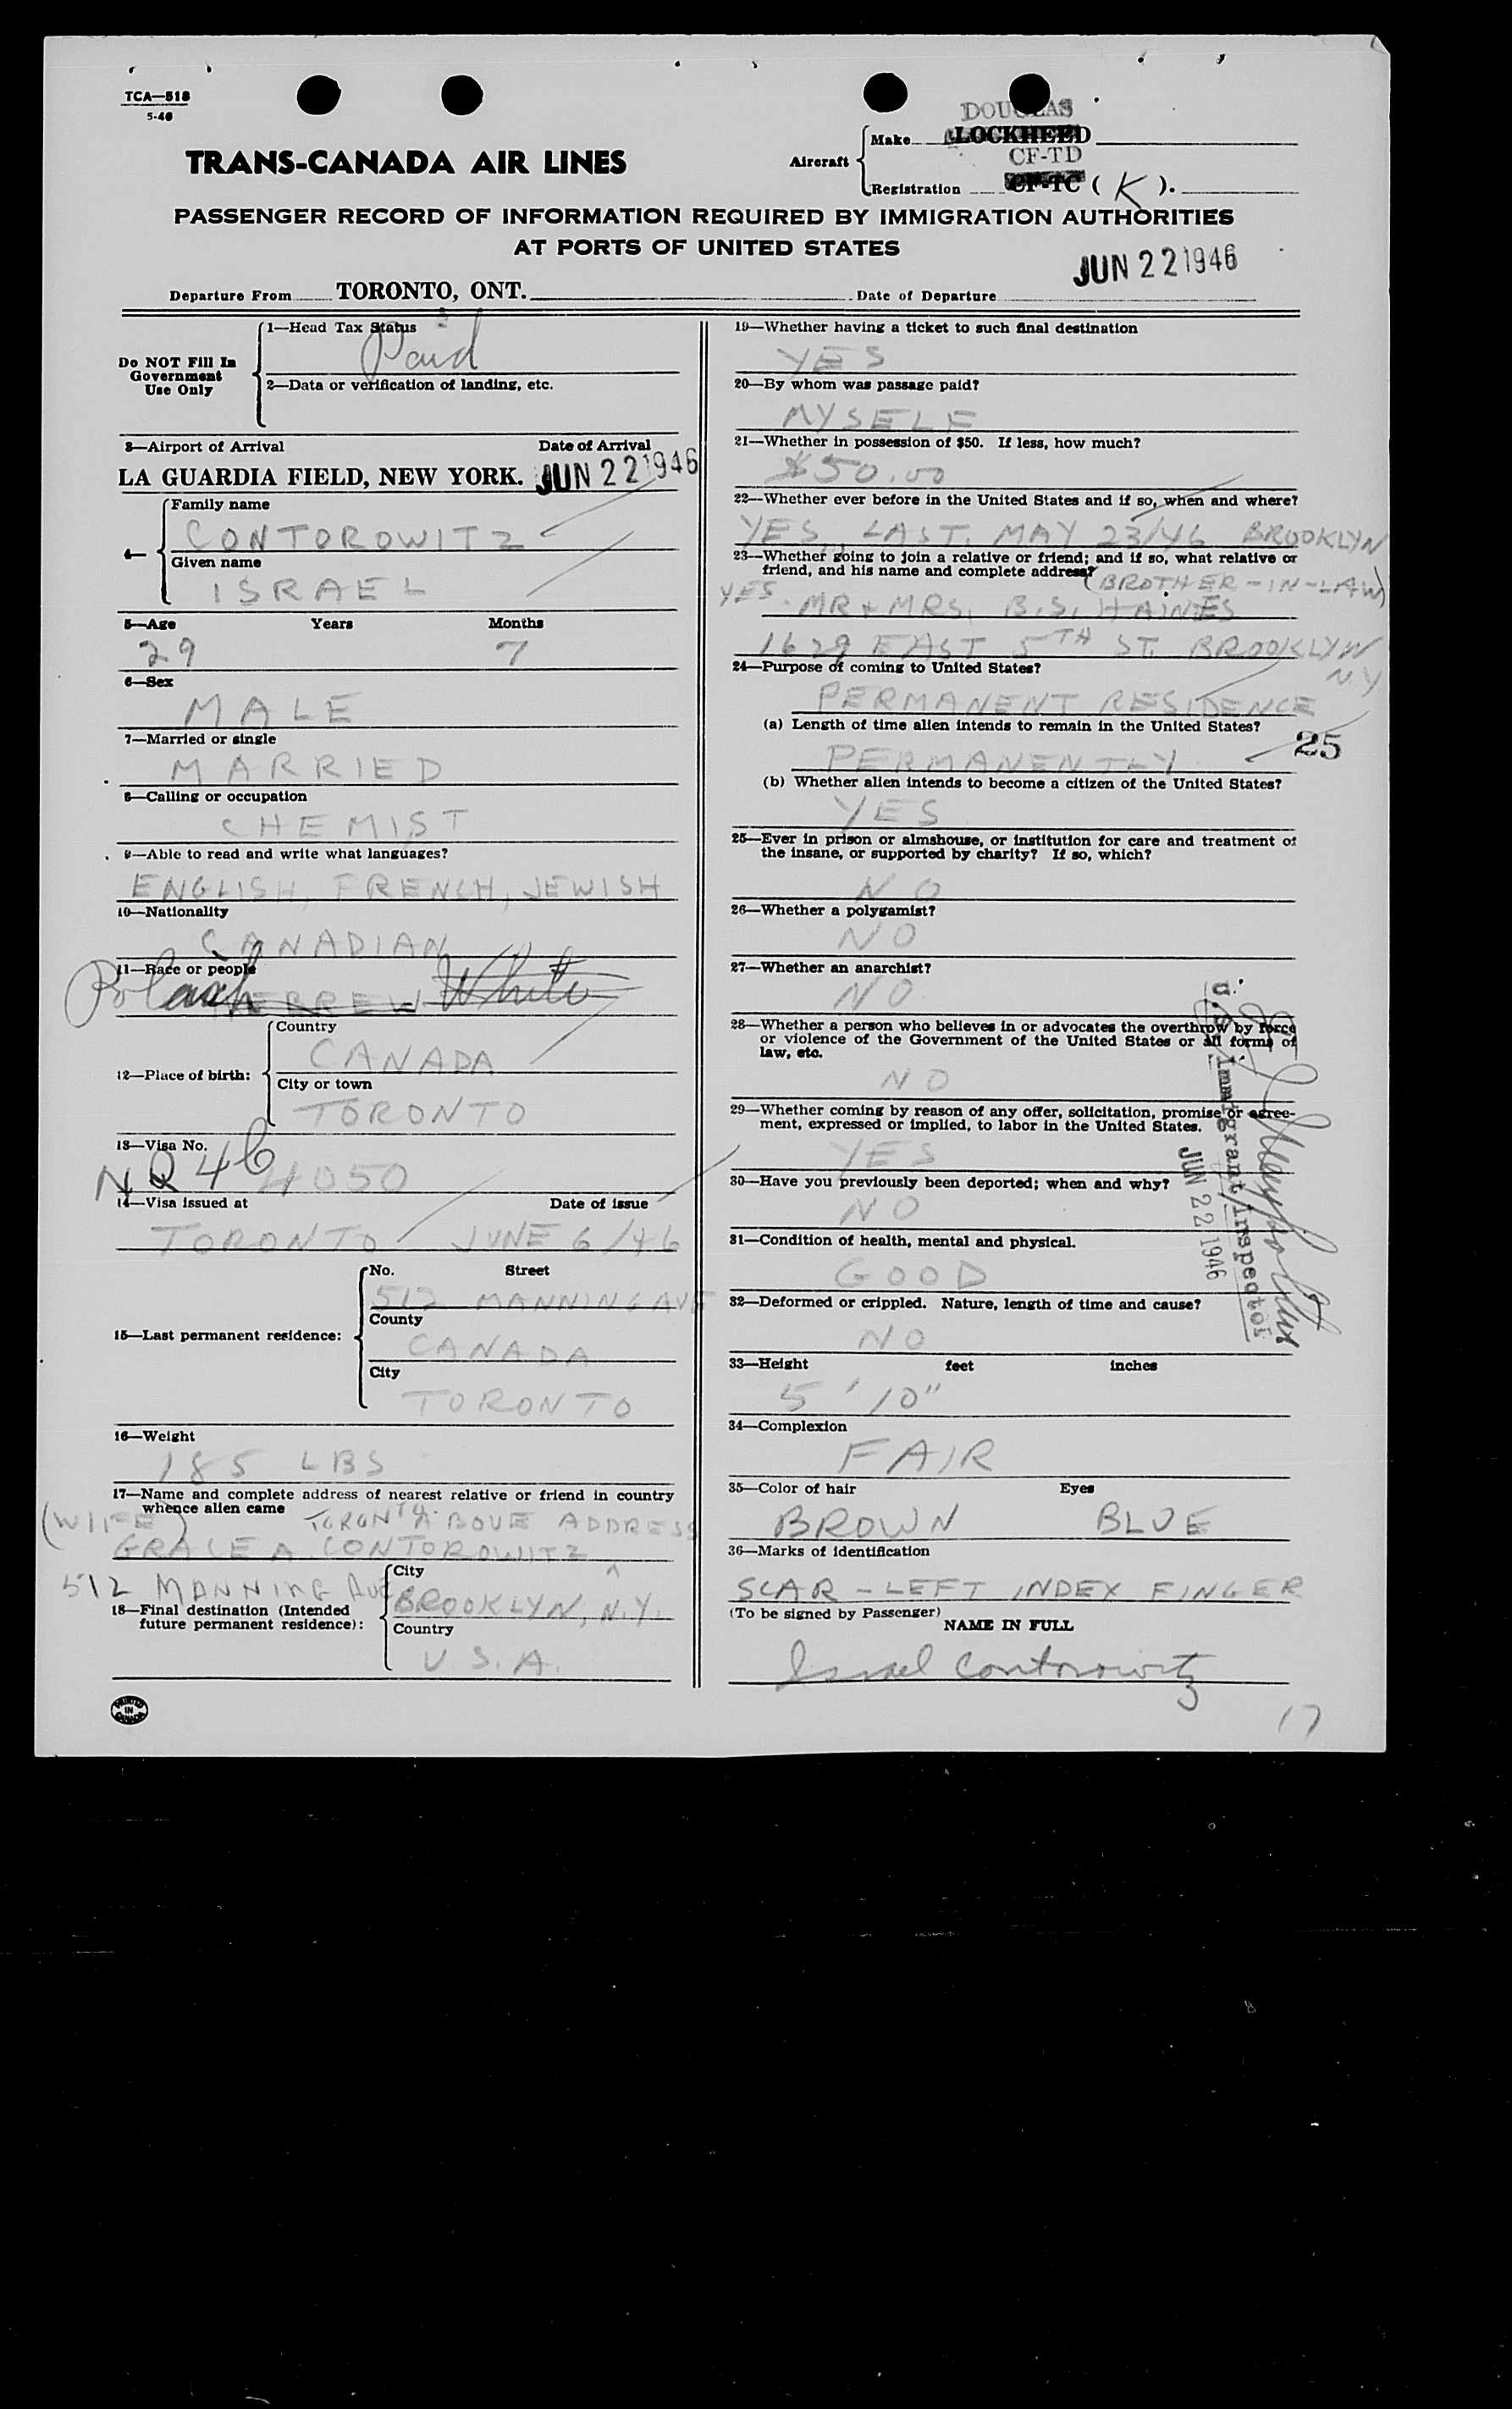 TCA—518
5-46
DOUGLAS
TRANS-CANADA AIR LINES
Aircraft
Make LOCKHEED
CF-TD
Registration CF-TC ( K ).
PASSENGER RECORD OF INFORMATION REQUIRED BY IMMIGRATION AUTHORITIES
AT PORTS OF UNITED STATES
JUN 22 1946
Departure From TORONTO, ONT. Date of Departure
Do NOT Fill In
Government
Use Only
1—Head Tax Status
Paid
2—Data or verification of landing, etc.
3—Airport of Arrival Date of Arrival
LA GUARDIA FIELD, NEW YORK. JUN 22 1946
4—
Family name
CONTOROWITZ
Given name
ISRAEL
5—Age Years Months
29 7
6—Sex
MALE
7—Married or single
MARRIED
8—Calling or occupation
CHEMIST
9—Able to read and write what languages?
ENGLISH, FRENCH, JEWISH
10—Nationality
CANADIAN
11—Race or people
Polish HEBREW White
12—Place of birth:
Country
CANADA
City or town
TORONTO
13—Visa No.
NQ 46 4050
14—Visa issued at Date of issue
TORONTO JUNE 6/46
15—Last permanent residence:
No. Street
512 MANNING AVE
County
CANADA
City
TORONTO
16—Weight
185 LBS
17—Name and complete address of nearest relative or friend in country
whence alien came
(WIFE) TORONTO ABOVE ADDRESS
GRACE A CONTOROWITZ
512 MANNING AVE
18—Final destination (Intended
future permanent residence):
City
BROOKLYN, N.Y.
Country
U.S.A.
PRINTED
IN
CANADA
19—Whether having a ticket to such final destination
YES
20—By whom was passage paid?
MYSELF
21—Whether in possession of $50. If less, how much?
$50.00
22—Whether ever before in the United States and if so, when and where?
YES, LAST. MAY 23/46 BROOKLYN
23—Whether going to join a relative or friend; and if so, what relative or
friend, and his name and complete address?
(BROTHER-IN-LAW)
YES. MR & MRS. B.S. HAINES
1629 EAST 5TH ST. BROOKLYN
N.Y
24—Purpose of coming to United States?
PERMANENT RESIDENCE
(a) Length of time alien intends to remain in the United States?
25
PERMANENTLY
(b) Whether alien intends to become a citizen of the United States?
YES
25—Ever in prison or almshouse, or institution for care and treatment of
the insane, or supported by charity? If so, which?
NO
26—Whether a polygamist?
NO
27—Whether an anarchist?
NO
28—Whether a person who believes in or advocates the overthrow by force
or violence of the Government of the United States or all forms of
law, etc.
NO
29—Whether coming by reason of any offer, solicitation, promise or agree-
ment, expressed or implied, to labor in the United States.
YES
30—Have you previously been deported; when and why?
NO
31—Condition of health, mental and physical.
GOOD
32—Deformed or crippled. Nature, length of time and cause?
NO
33—Height feet inches
5' 10"
34—Complexion
FAIR
35—Color of hair Eyes
BROWN BLUE
36—Marks of identification
SCAR - LEFT INDEX FINGER
(To be signed by Passenger)
NAME IN FULL
Israel Contorowitz
17
U.S. Immigrant Inspector
JUN 22 1946